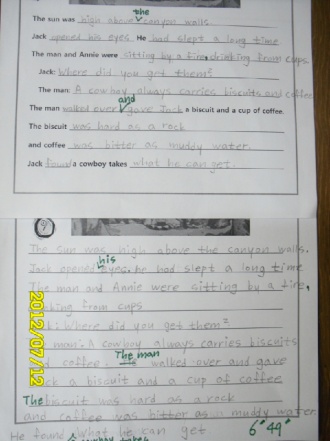 the
The sun was high above canyon walls
Jack opened his eyes. He had slept a long time
The man and Annie were sitting by a fire, drinking from cups.
Jack: Where did you get them?
The man: A cowboy always carries biscuits and coffee
and
The man walked over gave Jack a biscuit and a cup of coffee.
The biscuit was hard as a rock
and coffee was bitter as muddy water.
Jack found a cowboy takes what he can get.
9
The sun was high above the canyon walls.
his
Jack opened eyes. he had slept a long time
The man and Annie were sitting by a fire,
king from cups
: Where did you get them?
man: A cowboy always carries biscuits
d coffee.
The man
He walked over and gave
ck a biscuit and a cup of coffee
The biscuit was hard as a rock
and coffee was bitter as muddy water
He found what he can get
a cowboy takes
6'44"
2012/07/12